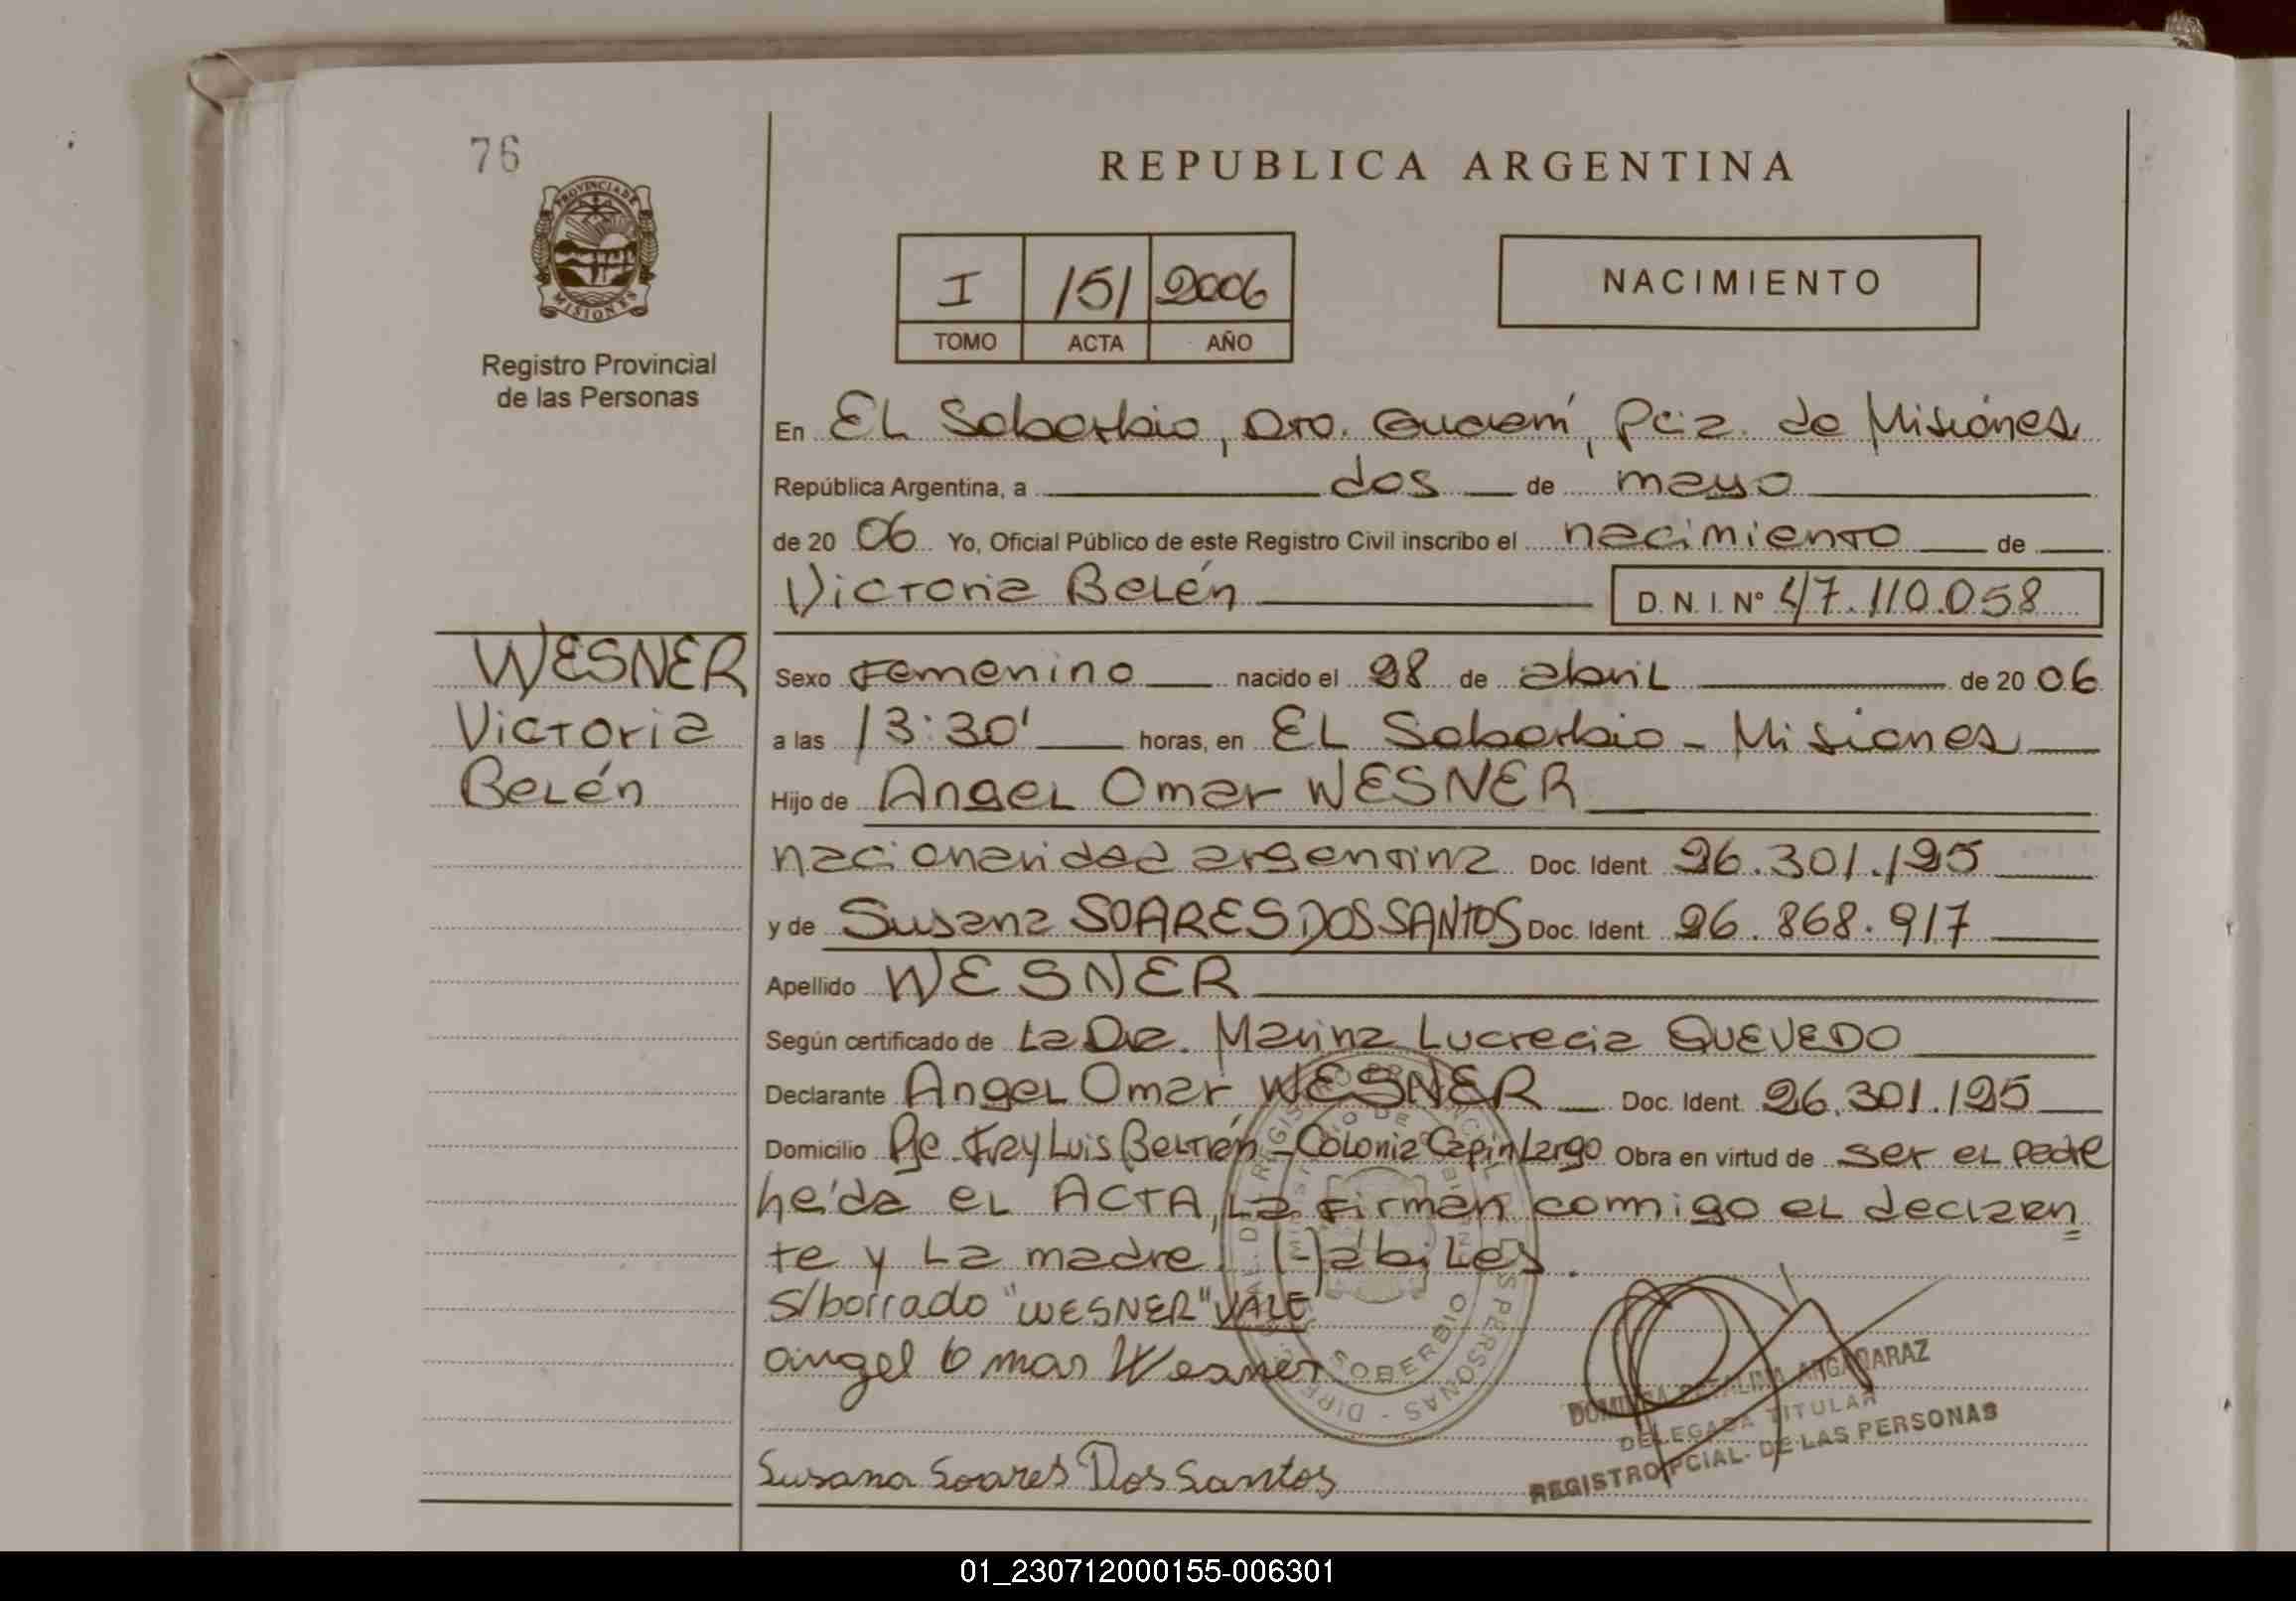 76
REPUBLICA ARGENTINA
PROVINCIA DE
MISIONES
Registro Provincial
de las Personas
I 151 2006
TOMO ACTA AÑO
NACIMIENTO
En EL Soberbio, Dto. Guaraní, Pcia. de Misiones
República Argentina, a dos de mayo
de 20 06 Yo, Oficial Público de este Registro Civil inscribo el nacimiento de
Victoria Belén D.N.I. Nº 47.110.058
WESNER
Victoria
Belén
Sexo Femenino nacido el 28 de abril de 20 06
a las 13:30' horas, en EL Soberbio - Misiones
Hijo de Angel Omar WESNER
nacionalidad argentina Doc. Ident. 26.301.125
y de Susana SOARES DOS SANTOS Doc. Ident. 26.868.917
Apellido WESNER
Según certificado de La Dra. Marina Lucrecia QUEVEDO
Declarante Angel Omar WESNER Doc. Ident. 26.301.125
Domicilio Pje. Fray Luis Beltrán - Colonia Capin Largo Obra en virtud de ser el padre
Leída el ACTA, la firman conmigo el declaran
te y La madre. Hábiles.
s/borrado "WESNER" VALE
angel Omar Wesner
SOBERBIO
Susana Soares Dos Santos
CATALINA ARGAÑARAZ
DELEGADA TITULAR
REGISTRO PCIAL. DE LAS PERSONAS
01_230712000155-006301